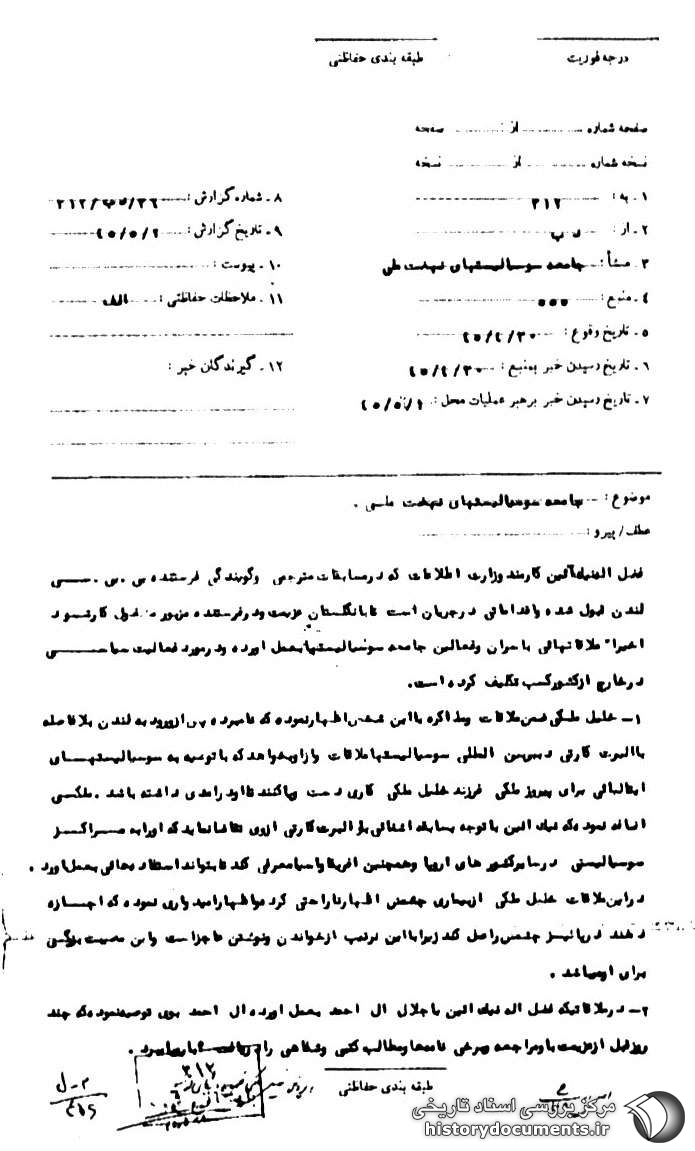 درجه فوریت
طبقه بندی حفاظتی
صفحه شماره از صفحه
نسخه شماره از نسخه
۱ ـ به : ۳۱۲
۲ ـ از :
۳ ـ منشأ : جامعه سوسیالیستهای نهضت ملی
۴ ـ منبع : ۵۵۵
۵ ـ تاریخ وقوع : ۴۵/۴/۳۰
۶ ـ تاریخ رسیدن خبر بمنبع : ۴۵/۴/۳۰
۷ ـ تاریخ رسیدن خبر برهبر عملیات محل :
۸ ـ شماره گزارش :
۹ ـ تاریخ گزارش : ۴۵/۵/۲
۱۰ ـ پیوست :
۱۱ ـ ملاحظات حفاظتی : الف
۱۲ ـ گیرندگان خبر :
موضوع : جامعه سوسیالیستهای نهضت ملی .
عطف/ پیرو :
کارمند وزارت اطلاعات که در مسابقات مترجمی وگویندگی فرستنده بی . بی . سی
لندن قبول شده واقداماتی در جریان است تا بانگلستان عزیمت ودر فرستنده مزبور مشغول کار شود
اخیرا" ملاقاتهائی با سران وفعالین جامعه سوسیالیستها بعمل آورده ودر مورد فعالیت سیاسی
در خارج از کشور کسب تکلیف کرده است.
۱ـ خلیل ملکی ضمن ملاقات ومذاکره با این شخص اظهار نموده که نامبرده پس از ورود به لندن بلافاصله
با آلبرت کارتی دبیر بین المللی سوسیالیستها ملاقات واز او بخواهد که با توصیه به سوسیالیستهای
ایتالیائی برای پیروز ملکی فرزند خلیل ملکی کاری دست وپا کنند تا او درآمدی داشته باشد . ملکی
اضافه نموده که نیک آئین با توجه بسابقه آشنائی با آلبرت کارتی از وی تقاضا نماید که او را به مراکز
سوسیالیستی در سایر کشور های اروپا وهمچنین افریقا وآسیا معرفی کند تا بتواند استفاده هائی بعمل آورد .
در این ملاقات خلیل ملکی از بیماری چشمش اظهار ناراحتی کرد واظهار امیدواری نموده که اجازه
دهند در پائیز چشمش را عمل کند زیرا با این ترتیب از خواندن ونوشتن عاجز است واین مصیبت بزرگی
برای او میباشد .
۲ـ در ملاقاتیکه فضل اله نیک آئین با جلال آل احمد بعمل آورده آل احمد بوی توصیه نموده که چند
روز قبل از عزیمت باو مراجعه نامه‌ها ومطالب کتبی وشفاهی را دریافت
طبقه بندی حفاظتی
۳۱۲
مرکز بررسی اسناد تاریخی
historydocuments.ir